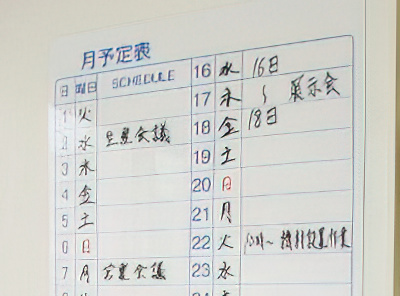 月予定表
日 曜日 SCHEDULE
1 火
2 水 会議
3 木
4 金
5 土
6 日
7 月 会議
16 水 16日
17 木 〜 展示会
18 金 18日
19 土
20 日
21 月
22 火 作業
23 水